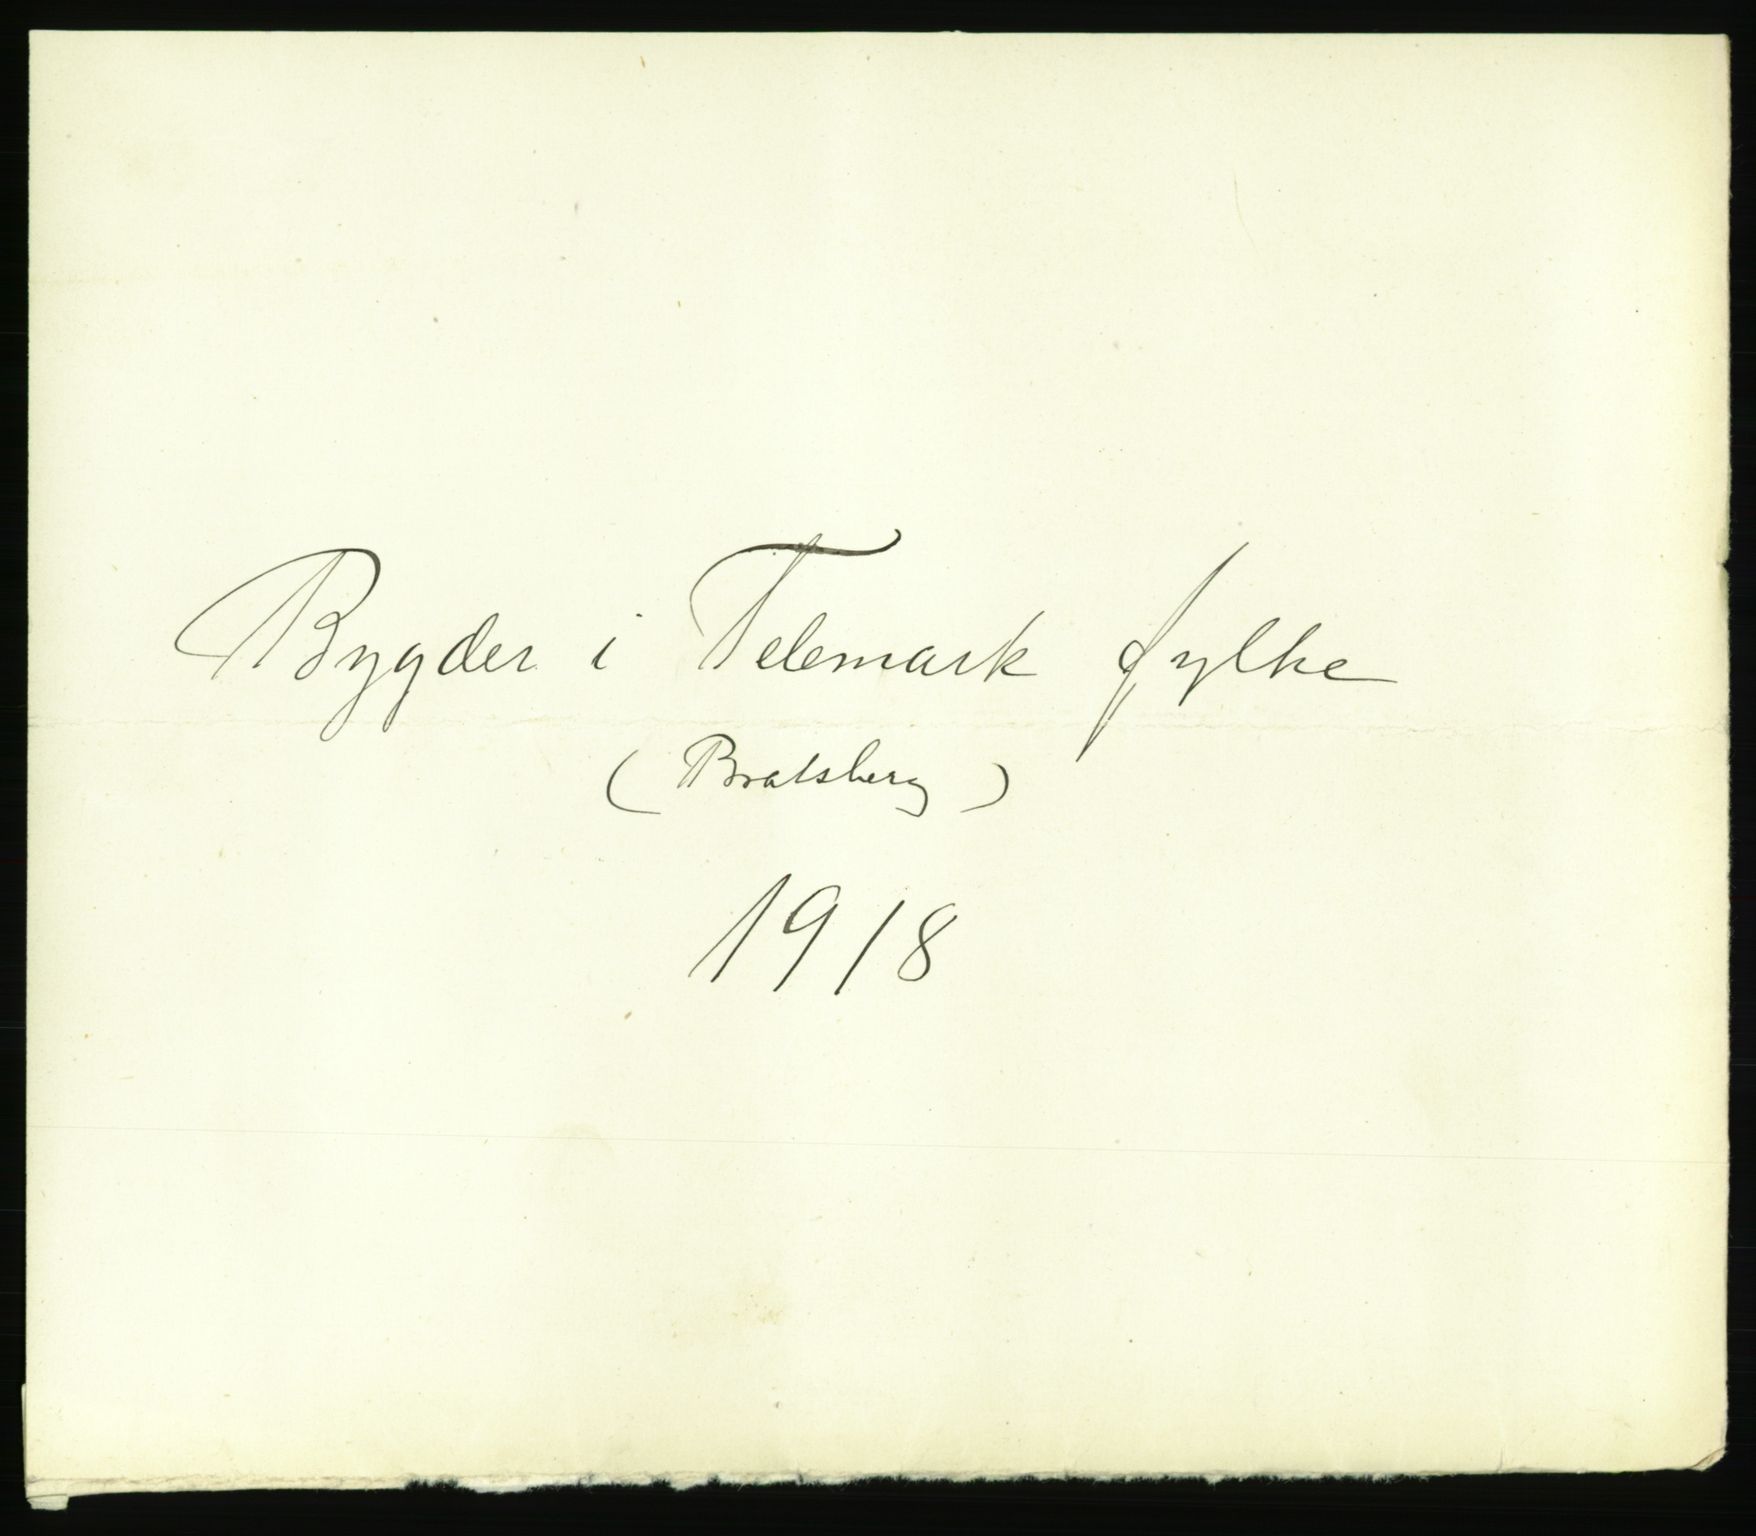 Bygder i Telemark fylke
(Bratsberg)
1918